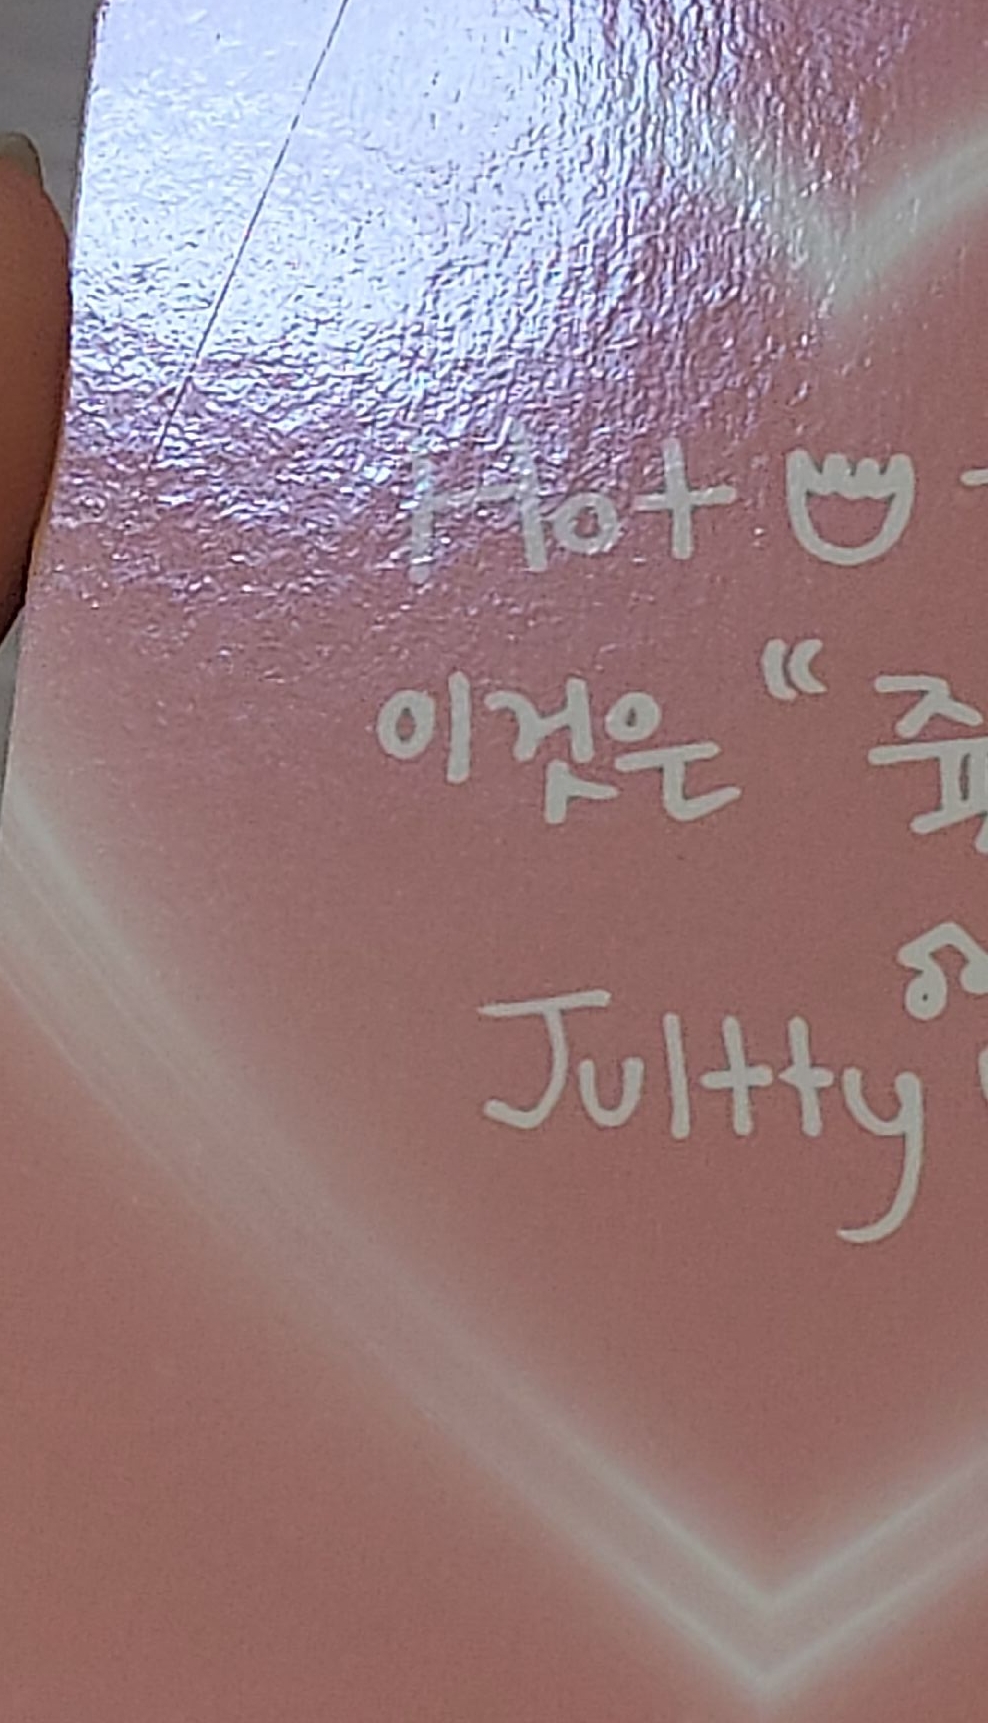 Hot
이것은 “
Jultty